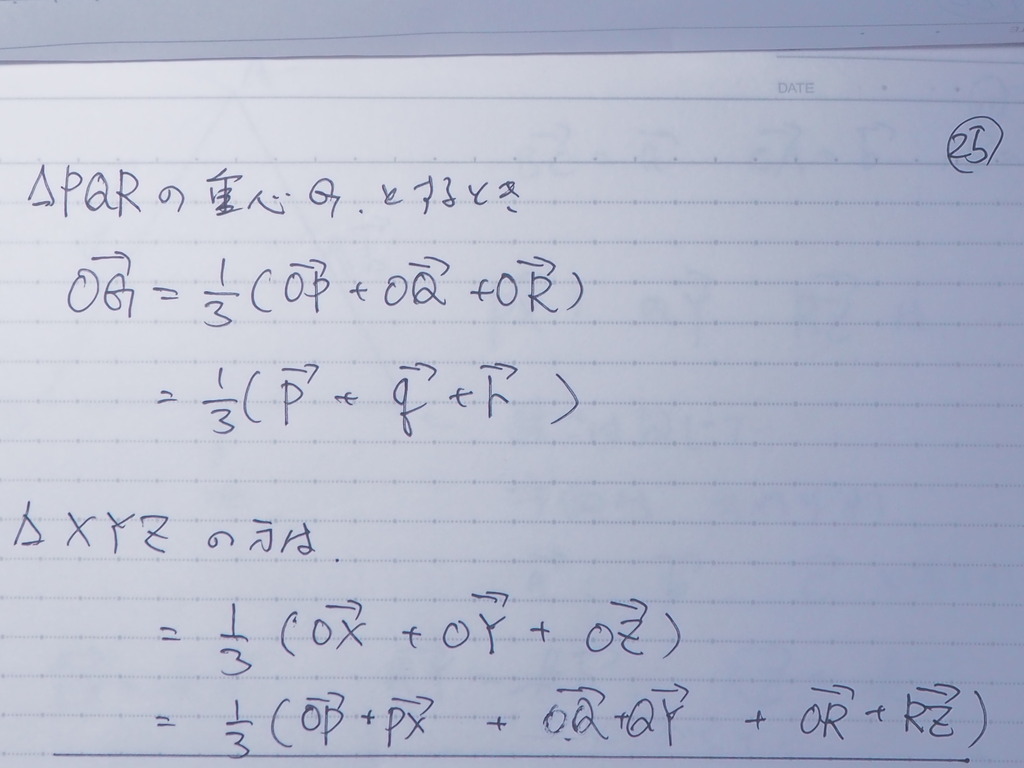 DATE
25
△PQRの重心G.とするとき
\overrightarrow{OG} = \frac{1}{3}(\overrightarrow{OP} + \overrightarrow{OQ} + \overrightarrow{OR})
= \frac{1}{3}(\vec{p} + \vec{q} + \vec{r})
△XYZの方は.
= \frac{1}{3}(\overrightarrow{OX} + \overrightarrow{OY} + \overrightarrow{OZ})
= \frac{1}{3}(\overrightarrow{OP} + \overrightarrow{PX} + \overrightarrow{OQ} + \overrightarrow{QY} + \overrightarrow{OR} + \overrightarrow{RZ})